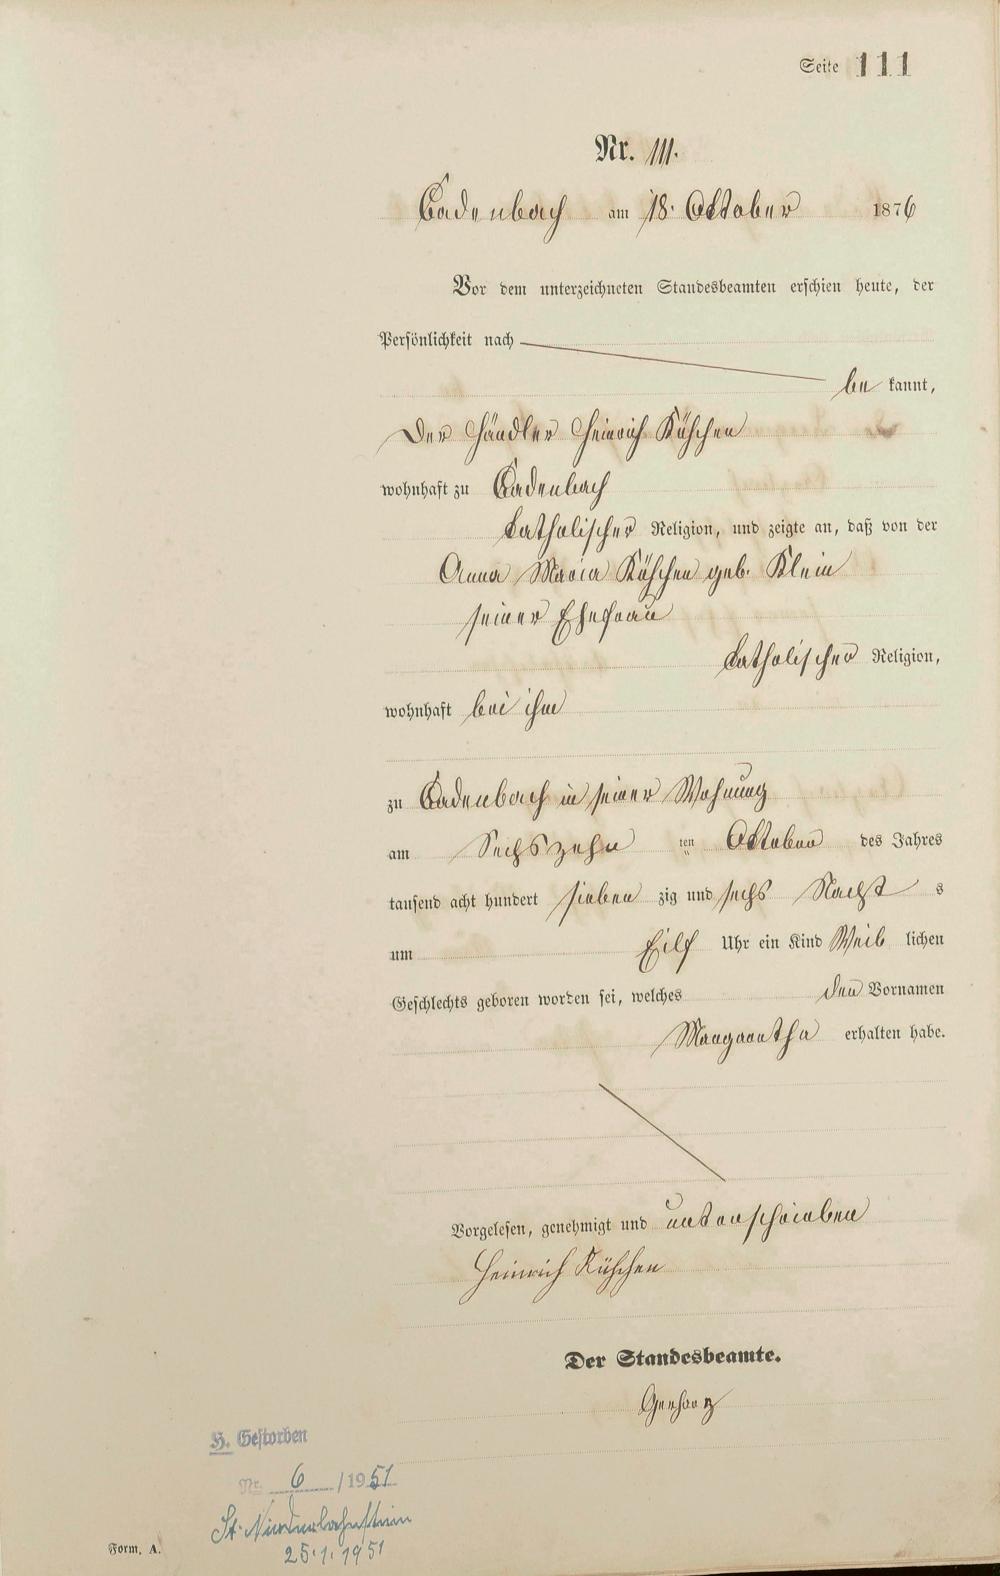 Seite 111
Nr. 111.
Cadenbach am 18. Oktober 1876
Vor dem unterzeichneten Standesbeamten erschien heute, der
Persönlichkeit nach
be kannt,
Der Händler Heinrich Kühchen
wohnhaft zu Cadenbach
katholischer Religion, und zeigte an, daß von der
Anna Maria Kühchen geb. Klein
seiner Ehefrau
katholischer Religion,
wohnhaft bei ihm
zu Cadenbach in seiner Wohnung
am Sechszehn ten Oktober des Jahres
tausend acht hundert sieben zig und sechs Nacht s
um Eilf Uhr ein Kind Weib lichen
Geschlechts geboren worden sei, welches den Vornamen
Margaretha erhalten habe.
Vorgelesen, genehmigt und unterschrieben
Heinrich Kühchen
Der Standesbeamte.
Gerharz
H. Gestorben
Nr. 6 /1951
St. Niederlahnstein
25.1.1951
Form. A.